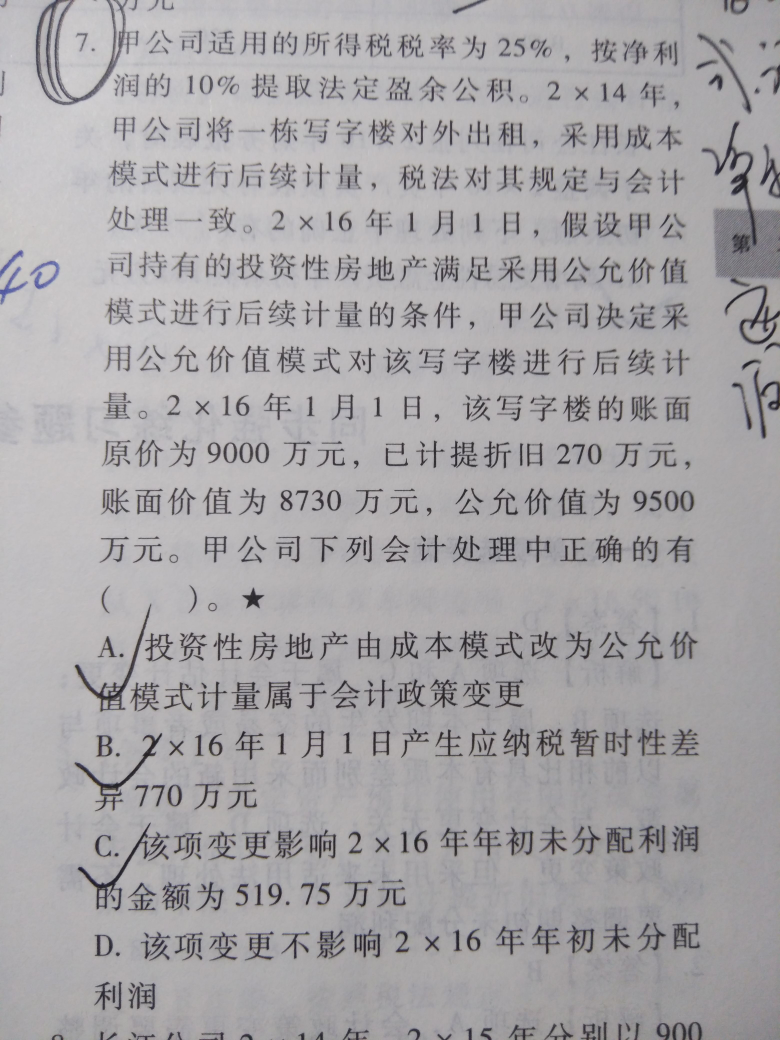 万元
7. 甲公司适用的所得税税率为 25%，按净利
润的 10% 提取法定盈余公积。2×14 年，
甲公司将一栋写字楼对外出租，采用成本
模式进行后续计量，税法对其规定与会计
处理一致。2×16 年 1 月 1 日，假设甲公
司持有的投资性房地产满足采用公允价值
模式进行后续计量的条件，甲公司决定采
用公允价值模式对该写字楼进行后续计
量。2×16 年 1 月 1 日，该写字楼的账面
原价为 9000 万元，已计提折旧 270 万元，
账面价值为 8730 万元，公允价值为 9500
万元。甲公司下列会计处理中正确的有
(　　)。★
A. 投资性房地产由成本模式改为公允价
值模式计量属于会计政策变更
B. 2×16 年 1 月 1 日产生应纳税暂时性差
异 770 万元
C. 该项变更影响 2×16 年年初未分配利润
的金额为 519.75 万元
D. 该项变更不影响 2×16 年年初未分配
利润
8. 长江公司 2×14 年、2×15 年分别以 900
40
第